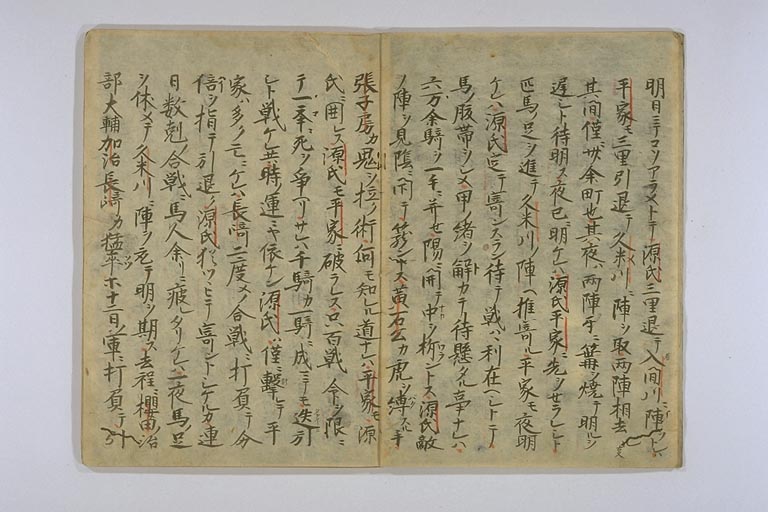 明日ニテコソアラメトテ源氏三里退テ入間川ニ陣ヲトレハ
平家モ三里引退テ久米川ニ陣ヲ取両陣相去
其間僅ニ卅余町也其夜ハ両陣手ニ篝ヲ焼テ明ルヲ
遅シト待明ス夜已ニ明ケレハ源氏平家ニ先ヲサラレシト
匹馬ノ足ヲ進テ久米川ノ陣ヘ推寄ル平家モ夜明
ケハ源氏定テ寄ンスラン待テ戦ハヽ利在ヘシトテ
馬ノ腹帯ヲシメ甲ノ緒ヲ解カテ待懸タル事ナレハ
六万余騎ヲ一手ニ并セ陽ニ開テ中ヲ破ントス源氏敵
ノ陣ヲ見陰ニ閉テ篭ントス黄石公カ虎ヲ縛スル手
張子房カ鬼ヲ拉ク術何モ知レル道ナレハ平家モ源
氏ニ囲レス源氏モ平家ニ破ラレス只百戦ノ命ヲ限ニ
テ一挙ニ死ヲ争ヘリサレハ千騎カ一騎ニ成ニテモ迭ニ引
シト戦ケレ共時ノ運ニヤ依ケン源氏ハ僅ニ撃レテ平
家ハ多クノモニケレハ長﨑二度メノ合戦ニ打負テ分
倍ヲ指テ引退ク源氏猶ツヽヒテ寄ントシケルカ連
日数剋ノ合戦ニ馬人余リニ疲レタリケレハ一夜馬足
ヲ休メテ久米川ニ陣ヲ取テ明ルヲ期ス去程ニ櫻田治
部大輔加治長﨑カ猛卒ホ十二日ノ軍ニ打負テ引